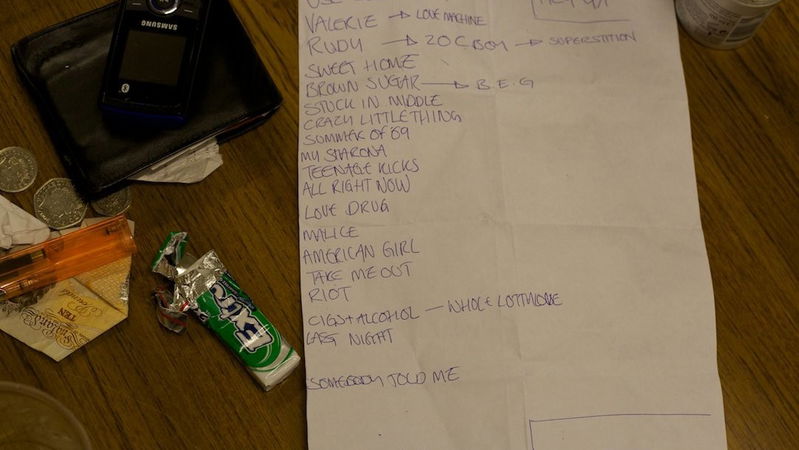 USE
VALERIE → LOVE MACHINE
RUDY → 20 C BOY → SUPERSTITION
SWEET HOME
BROWN SUGAR → B.E.G
STUCK IN MIDDLE
CRAZY LITTLE THING
SUMMER OF 69
MY SHARONA
TEENAGE KICKS
ALL RIGHT NOW
LOVE DRUG
MALICE
AMERICAN GIRL
TAKE ME OUT
RIOT
CIGS + ALCOHOL — WHOLE LOTTA LOVE
LAST NIGHT
SOMEBODY TOLD ME
SAMSUNG
EXTRA
TEN
Pounds